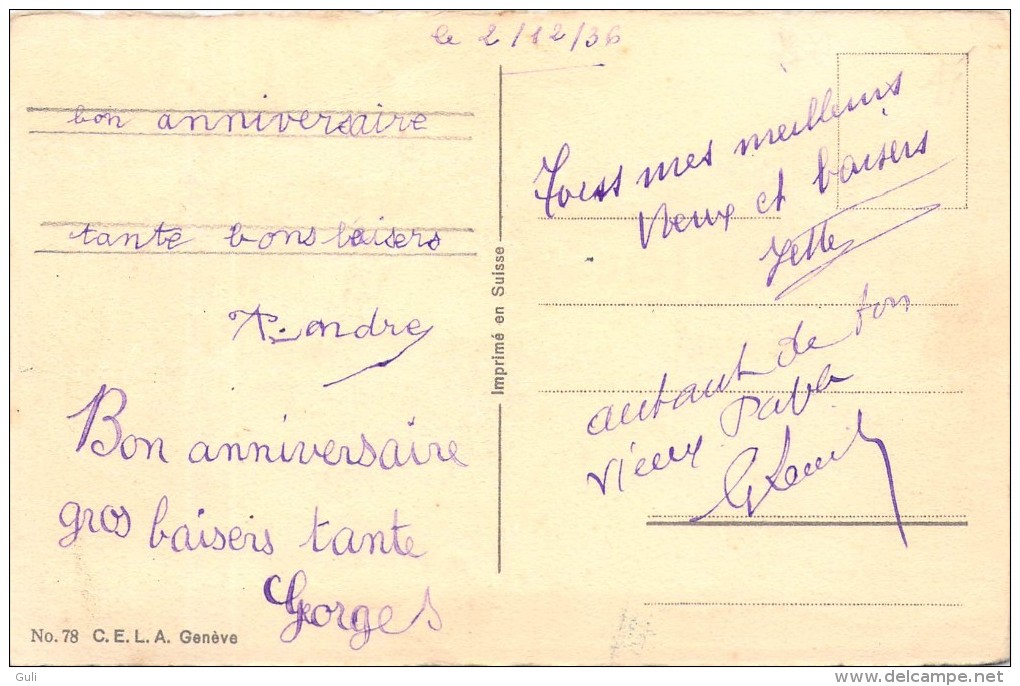 le 2/12/36
bon anniversaire
tante bons baisers
André
Bon anniversaire
gros baisers tante
Georges
No. 78 C. E. L. A. Genève
Imprimé en Suisse
Tous mes meilleurs
Vœux et baisers
Yette
autant de ton
vieux Papa
Guli
www.delcampe.net